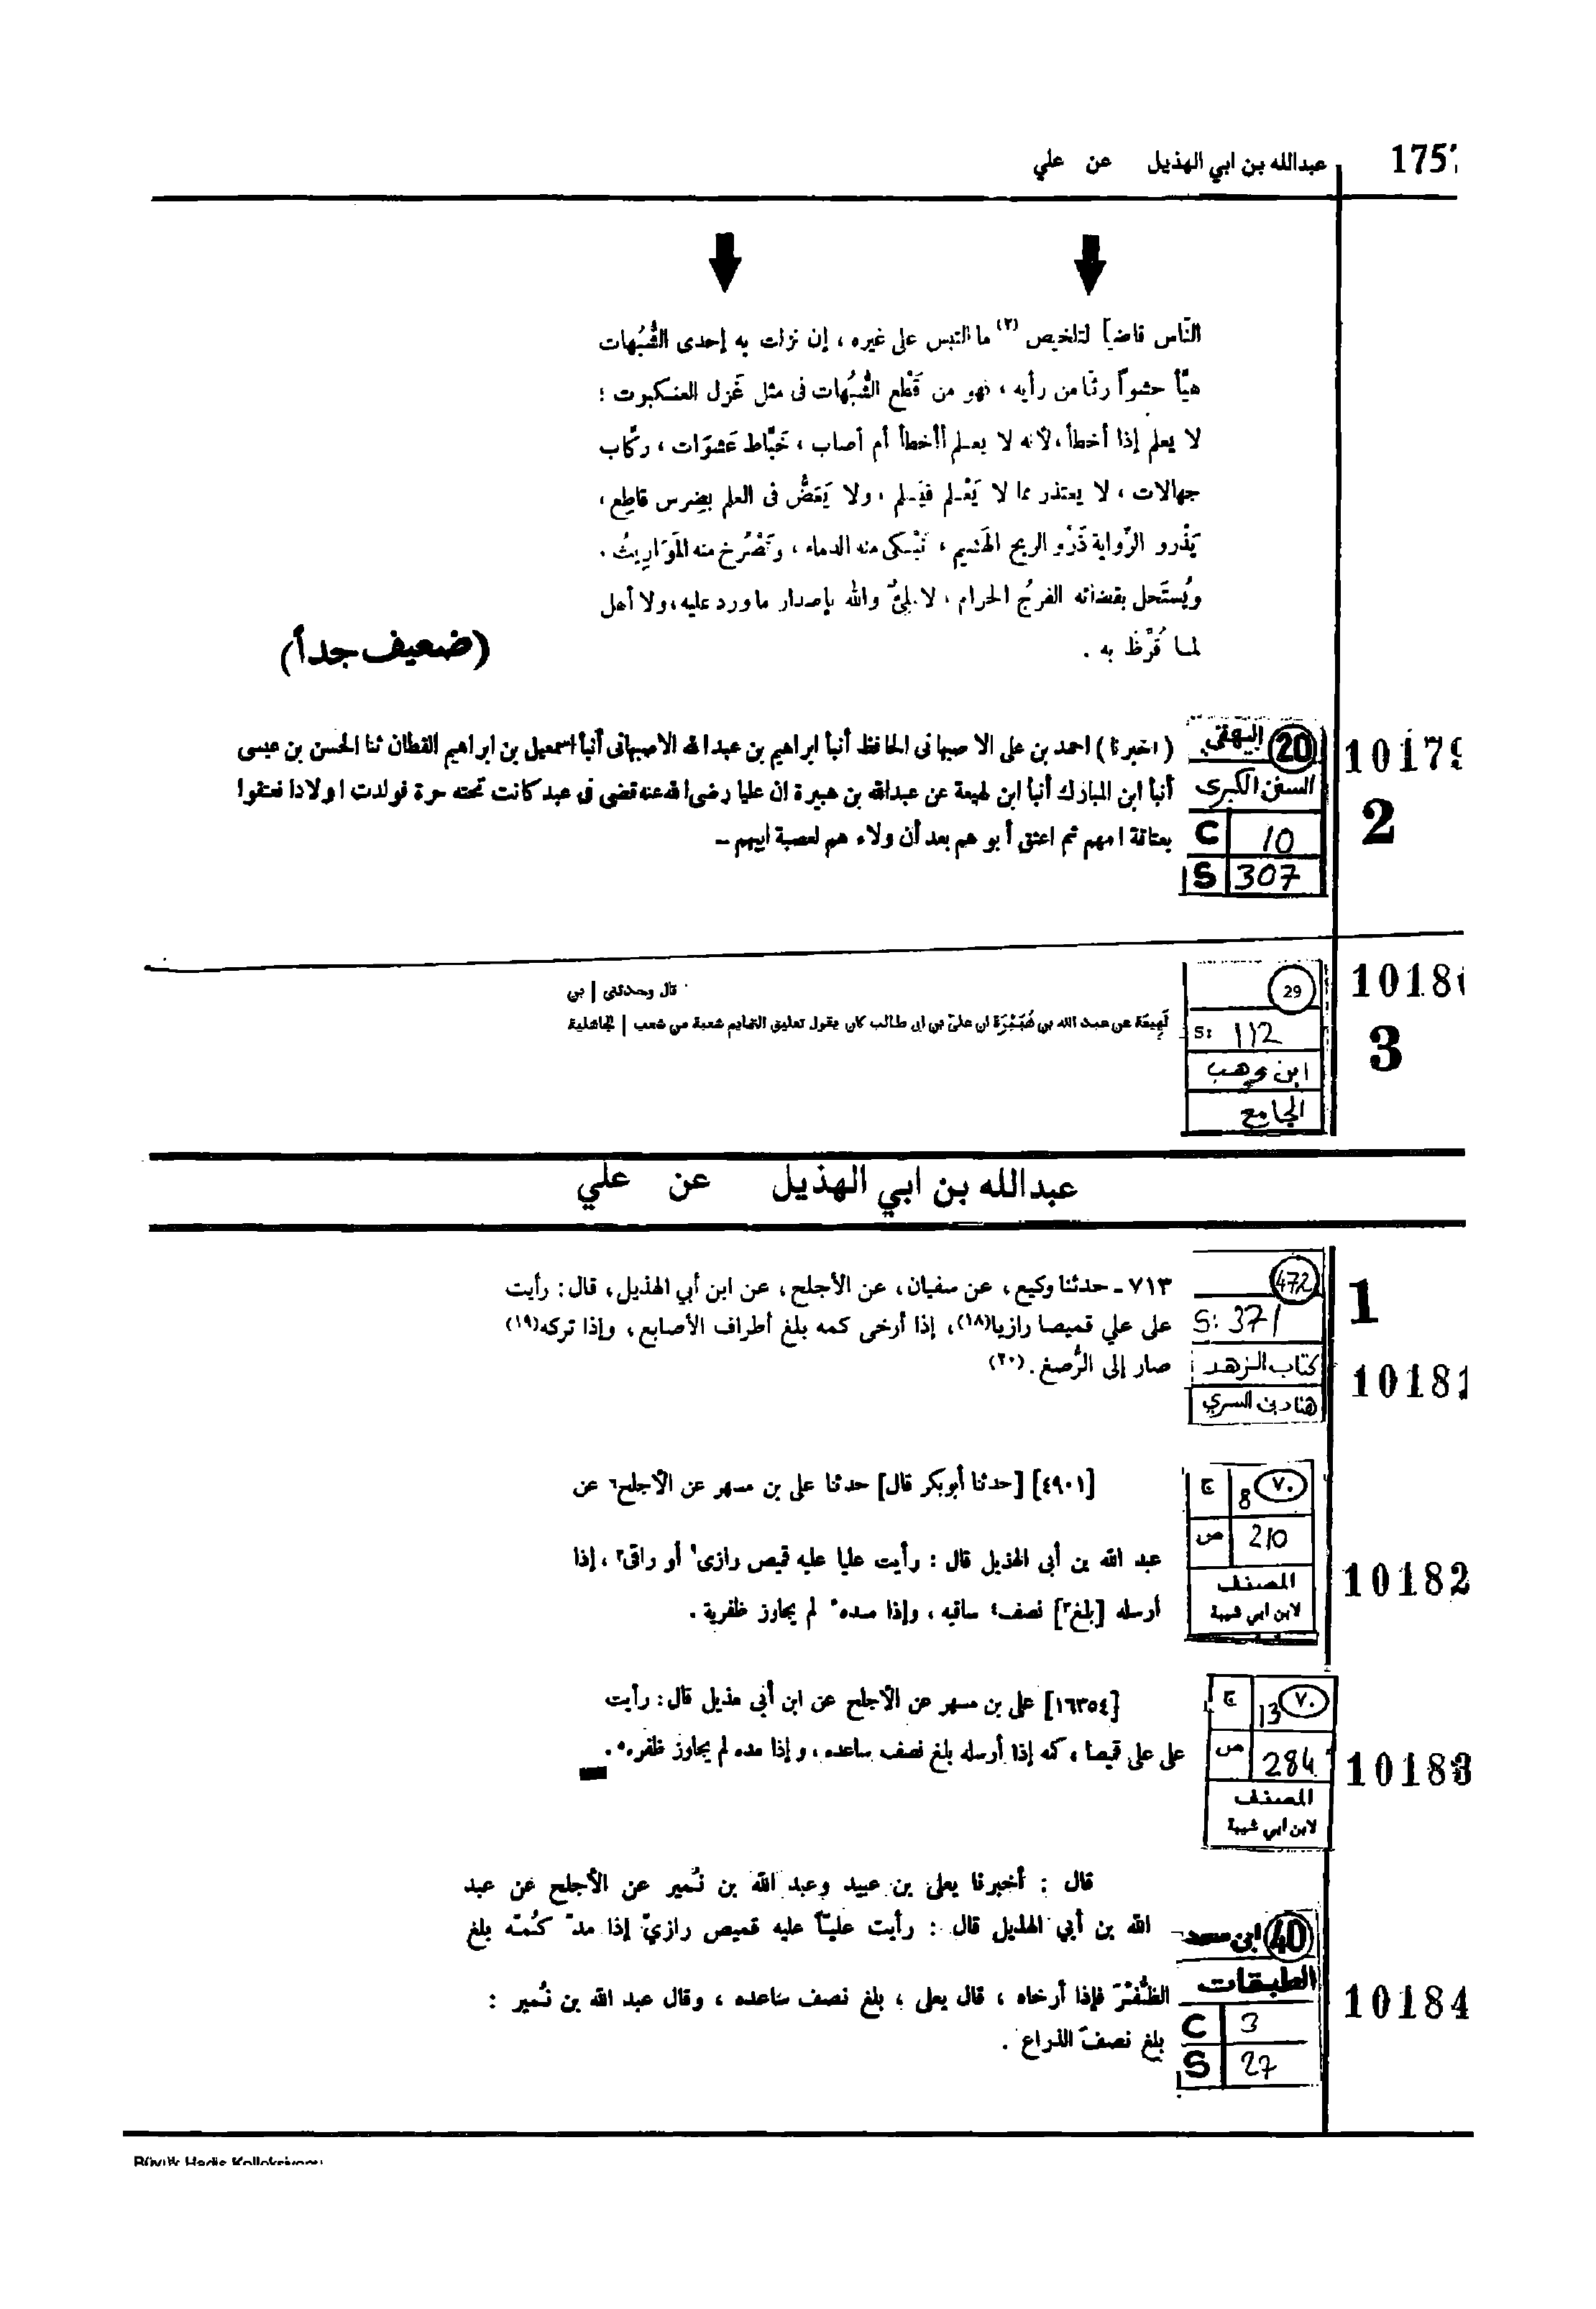 عبدالله بن ابي الهذيل عن علي 175
النّاس قاضيا لتلخيص (٢) ما التبس على غيره ، إن نزلت به إحدى الشُّبُهات
هيَّأ حشواً رثّا من رأيه ، فهو من قَطْع الشُّبُهات فى مثل غَزل العنكبوت :
لا يعلم إذا أخطأ ، لأنه لا يعلم أأخطأ أم أصاب ، خَبَّاط عَشوَات ، ركّاب
جهالات ، لا يعتذر مما لا يَعْلم فيَسلم ، ولا يَعَضُّ فى العلم بضِرس قاطِع ،
يَذْرو الرّواية ذَرْو الريح الهَشيم ، تَبْكى منه الدماء ، وتَصْرُخ منه المَوَاريثُ .
ويُستَحل بقضائه الفرجُ الحرام ، لا ملئٌ والله بإصدار ماورد عليه ، ولا أهل
لما قُرِّظ به .
(ضعيف جداً)
20 البيهقي
السنن الكبرى
C 10
S 307
10179
2
( اخبرنا ) احمد بن على الاصبهانى الحافظ أنبأ ابراهيم بن عبدالله الاصبهانى أنبأ اسمعيل بن ابراهيم القطان ثنا الحسن بن عيسى
أنبأ ابن المبارك أنبأ ابن لهيعة عن عبدالله بن هبيرة ان عليا رضى الله عنه قضى فى عبد كانت تحته حرة فولدت اولادا فعتقوا
بعتاقة امهم ثم اعتق أبوهم بعد أن ولاءهم لعصبة ابيهم –
29
S: 112
ابن وهب
الجامع
1018
3
قال وحدثنى | بن
لَهِيعَة عن عبد الله بن هُبَيْرَة ان علىّ بن ابى طالب كان يقول تعليق التمايم شعبة من شعب | لجاهلية
عبدالله بن ابي الهذيل عن علي
472
S: 371
كتاب الزهد
هناد بن السري
1
10181
٧١٣ ـ حدثنا وكيع ، عن سفيان ، عن الأجلح ، عن ابن أبي الهذيل ، قال : رأيت
على علي قميصا رازيا(١٨) ، إذا أرخى كمه بلغ أطراف الأصابع ، وإذا تركه(١٩)
صار إلى الرُّصغ . (٢٠)
ج 8 ٧٠
ص 210
المصنف
لابن ابي شيبة
10182
[٤٩٠١] [حدثنا أبوبكر قال] حدثنا على بن مسهر عن الأجلح٦ عن
عبد الله بن أبى الهذيل قال : رأيت عليا عليه قميص رازى١ أو راقى٢ ، إذا
أرسله [بلغ٣] نصف٤ ساقيه ، وإذا مده٥ لم يجاوز ظفرية .
ج 13 ٧٠
ص 284
المصنف
لابن ابي شيبة
10183
[١٦٣٥٤] على بن مسهر عن الأجلح عن ابن أبى هذيل قال : رأيت
على على قميصا ، كمه إذا أرسله بلغ نصف ساعده ، وإذا مده لم يجاوز ظفره٥ .
40 ابن سعد
الطبقات
C 3
S 27
10184
قال : أخبرنا يعلى بن عبيد وعبد الله بن نُمير عن الأجلح عن عبد
الله بن أبي الهذيل قال : رأيت عليّاً عليه قميص رازيّ إذا مدّ كُمّه بلغ
الظُّفْرَ فإذا أرخاه ، قال يعلى ، بلغ نصف ساعده ، وقال عبد الله بن نُمير :
بلغ نصفَ الذراع .
Büyük Hadis Kolleksiyonu